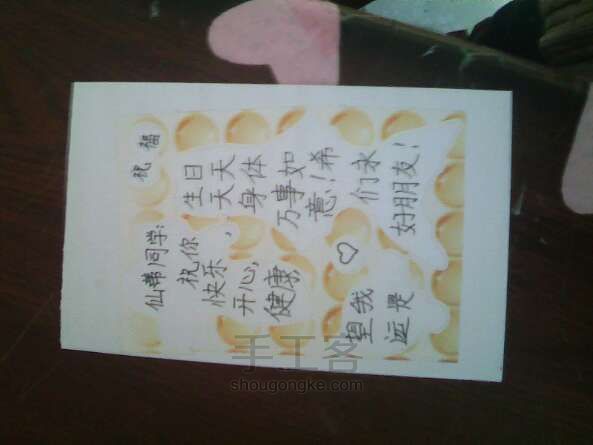 祝福
仙弟同学:
祝你生日
快乐,天天
开心,身体
健康,万事如
意!希
望我♡们永
远是好朋友!
手工客
shougongke.com